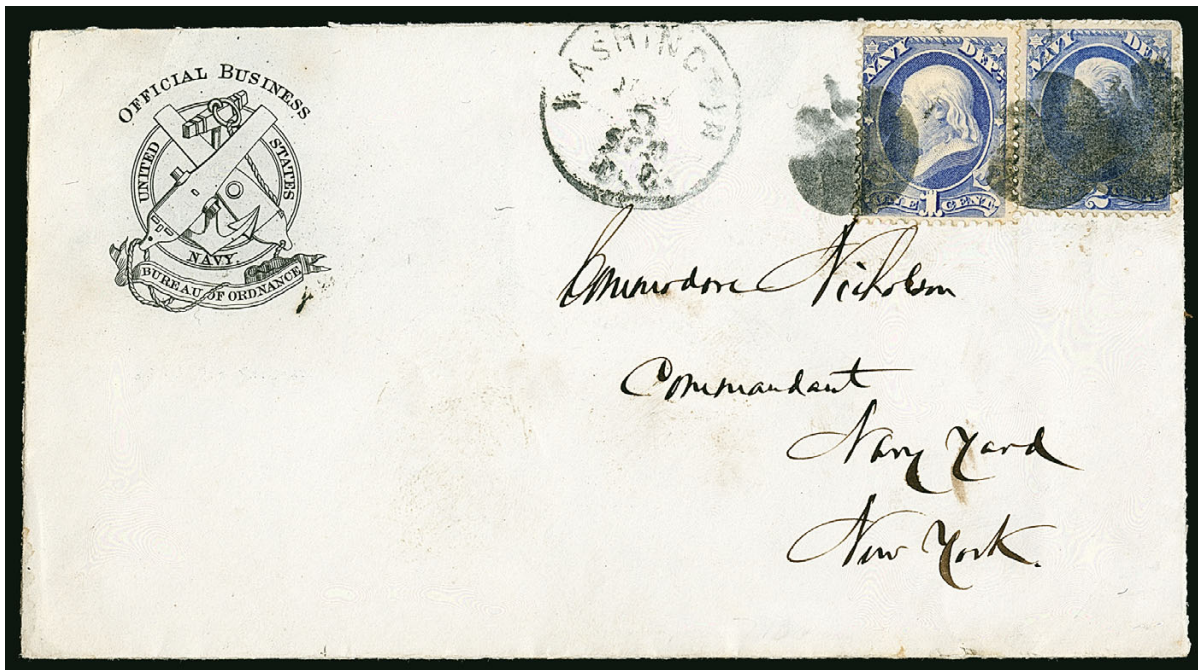 OFFICIAL BUSINESS
UNITED STATES
NAVY.
BUREAU OF ORDNANCE
WASHINGTON
D.C.
NAVY DEPT.
ONE 1 CENT
NAVY DEPT.
2
Commodore Nicholson
Commandant
Navy Yard
New York.